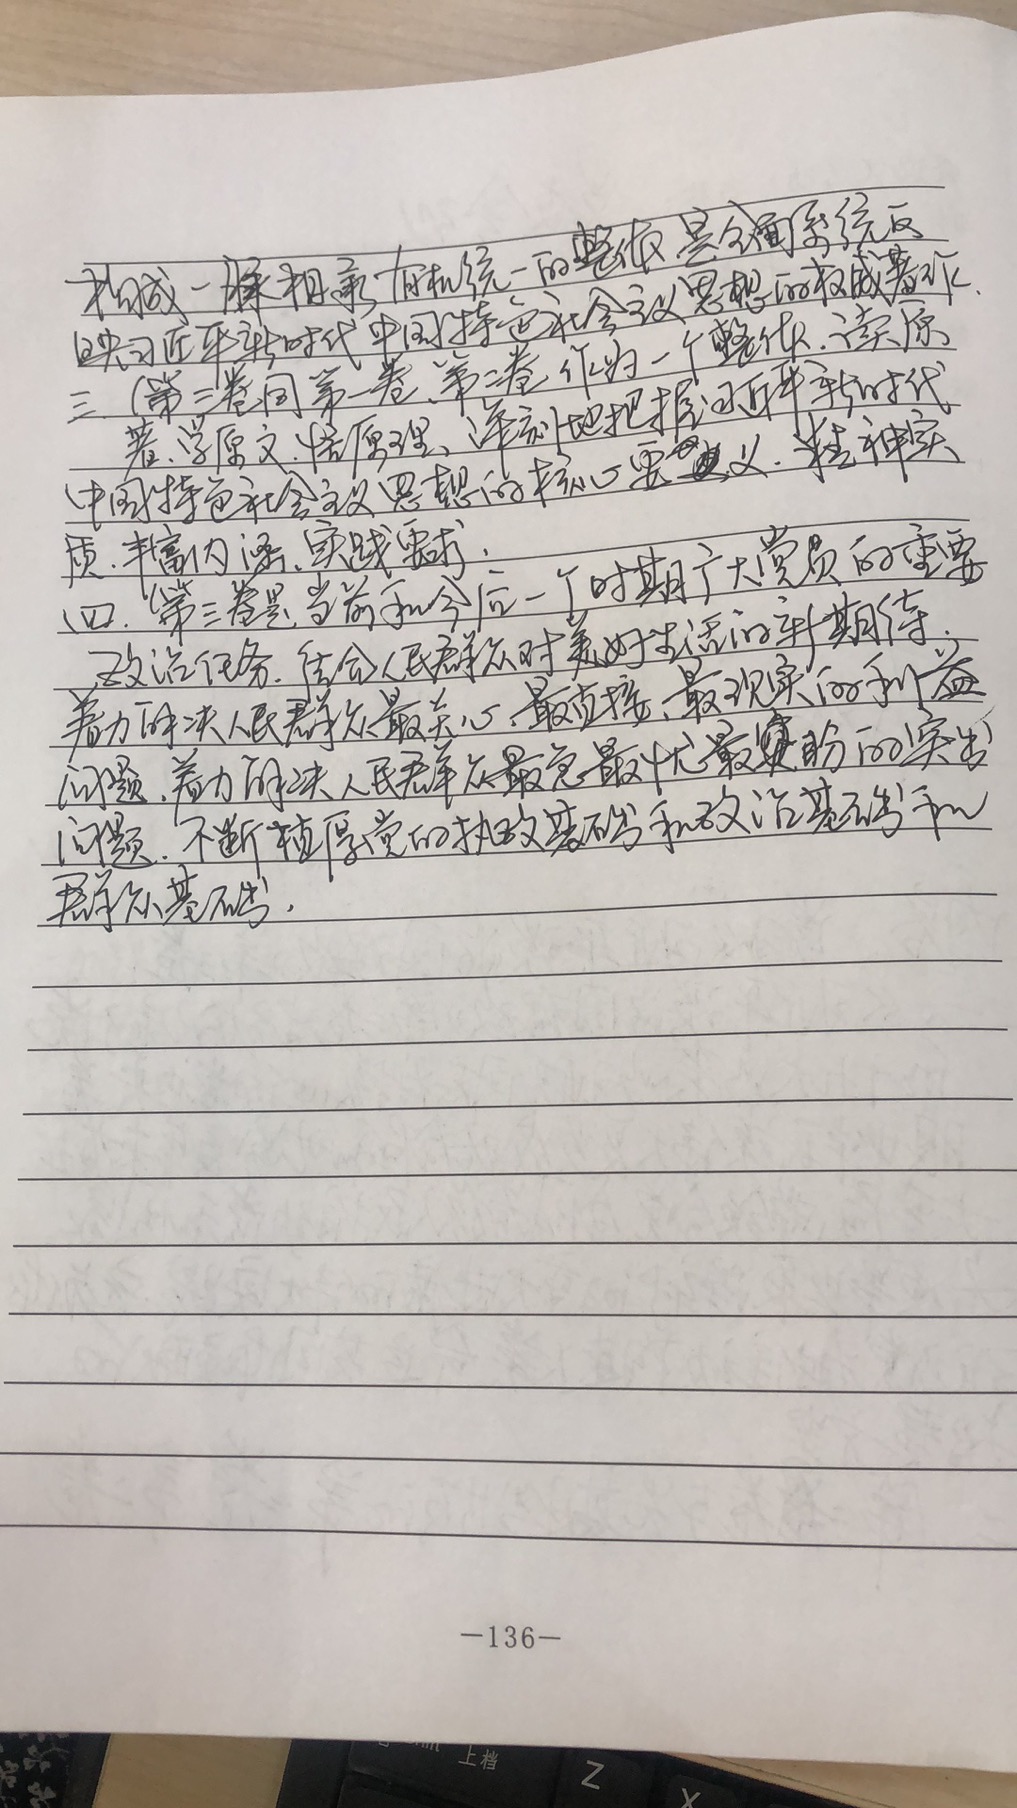 构成一脉相承、有机统一的整体是全面系统反
映习近平新时代中国特色社会主义思想的权威著作.
三.(第三卷同第一卷、第二卷作为一个整体.读原
著、学原文、悟原理、深刻地把握习近平新时代
中国特色社会主义思想的核心要义.精神实
质.丰富内涵、实践要求.
四.(第三卷是当前和今后一个时期广大党员的重要
政治任务.结合人民群众对美好生活的新期待.
着力解决人民群众最关心、最直接、最现实的利益
问题、着力解决人民群众最急最忧最盼的突出
问题.不断植厚党的执政基础和政治基础和
群众基础.
—136—
上档
Z
X